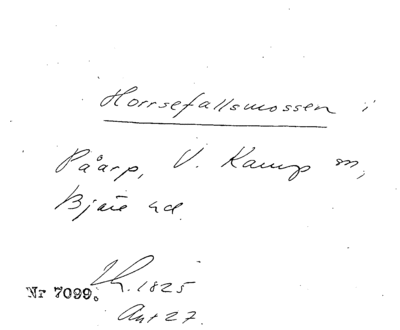 Horrsefallsmossen i
Påarp, V. Karup sn,
Bjäre hd.
1825
Nr 7099.
Akt 27.